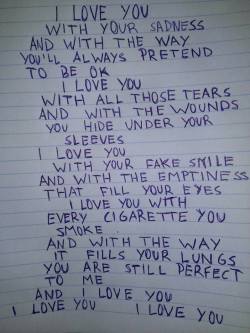 I LOVE YOU
WITH YOUR SADNESS
AND WITH THE WAY
YOU'LL ALWAYS PRETEND
TO BE OK
I LOVE YOU
WITH ALL THOSE TEARS
AND WITH THE WOUNDS
YOU HIDE UNDER YOUR
SLEEVES
I LOVE YOU
WITH YOUR FAKE SMILE
AND WITH THE EMPTINESS
THAT FILL YOUR EYES
I LOVE YOU WITH
EVERY CIGARETTE YOU
SMOKE
AND WITH THE WAY
IT FILLS YOUR LUNGS
YOU ARE STILL PERFECT
TO ME
AND I LOVE YOU
I LOVE YOU I LOVE YOU